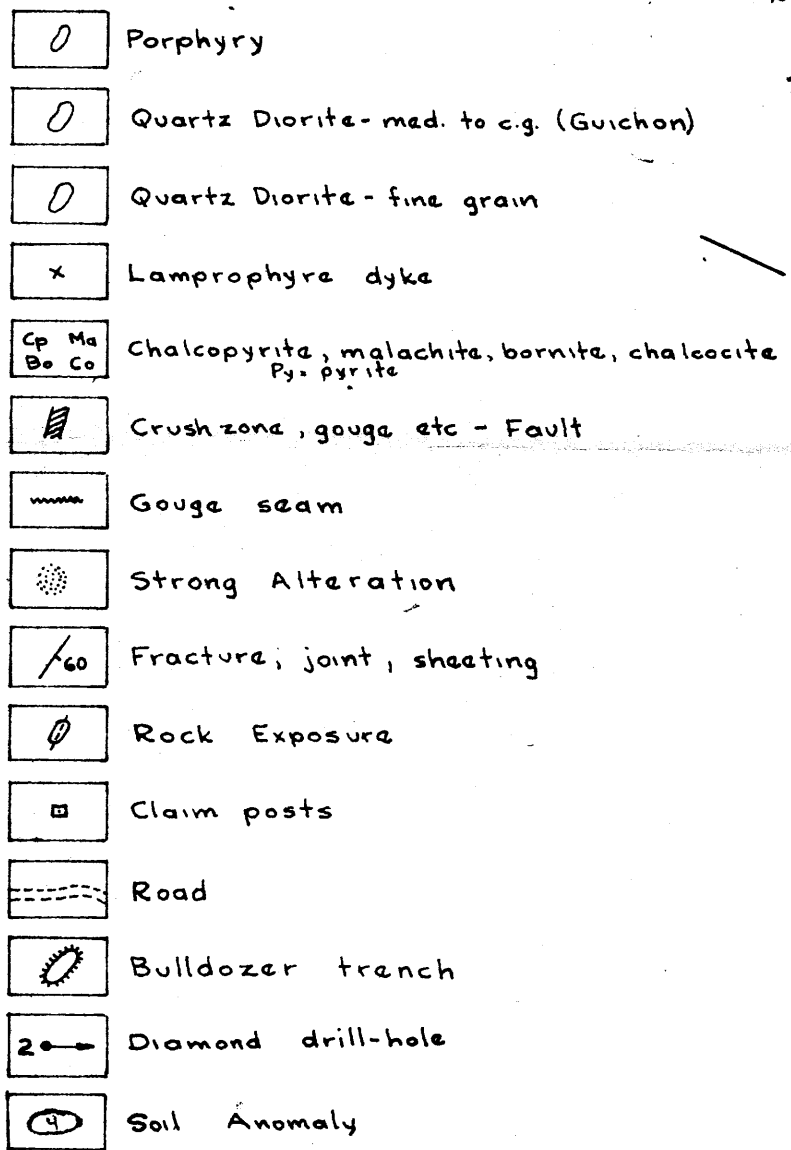 Porphyry
Quartz Diorite - med. to c.g. (Guichon)
Quartz Diorite - fine grain
x Lamprophyre dyke
Cp Ma
Bo Co
Chalcopyrite, malachite, bornite, chalcocite
Py = pyrite
Crush zone, gouge etc - Fault
Gouge seam
Strong Alteration
60 Fracture, joint, sheeting
Rock Exposure
Claim posts
Road
Bulldozer trench
2 Diamond drill-hole
4 Soil Anomaly